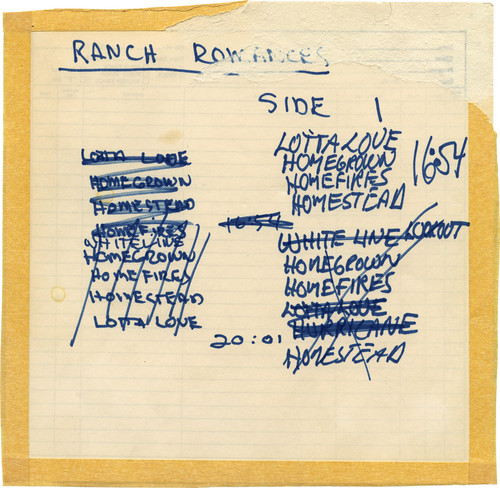 RANCH ROMANCES
SIDE 1
LOTTA LOVE
HOMEGROWN
HOMEFIRES
HOMESTEAD
16:54
LOTTA LOVE
HOMEGROWN
HOMESTEAD
HOMEFIRES
WHITELINE
HOMEGROWN
HOMEFIRES
HOMESTEAD
LOTTA LOVE
16:54
WHITE LINE LOOKOUT
HOMEGROWN
HOMEFIRES
LOTTA LOVE
HURRICANE
HOMESTEAD
20:01